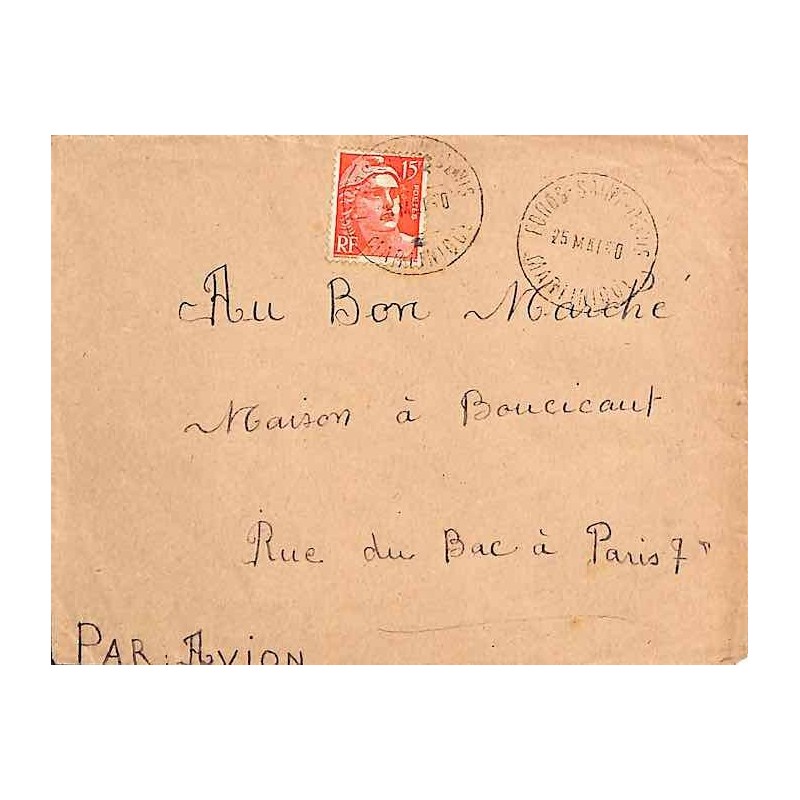 15F
POSTES
RF
MARTINIQUE
FONDS-SAINT-DENIS
25 MAI 50
MARTINIQUE
Au Bon Marché
Maison à Boucicaut
Rue du Bac à Paris 7e
PAR AVION